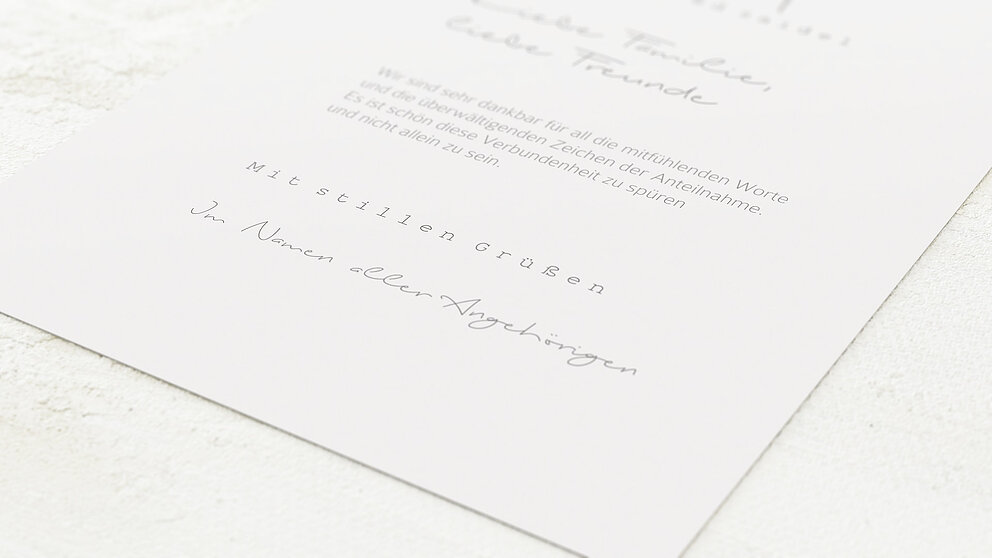 Liebe Familie,
liebe Freunde
Wir sind sehr dankbar für all die mitfühlenden Worte
und die überwältigenden Zeichen der Anteilnahme.
Es ist schön diese Verbundenheit zu spüren
und nicht allein zu sein.
Mit stillen Grüßen
Im Namen aller Angehörigen